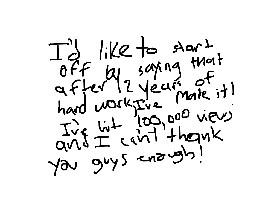 I'd like to start
off by saying that
after 12 years of
hard work, I've made it!
I've hit 100,000 views
and I can't thank
you guys enough!